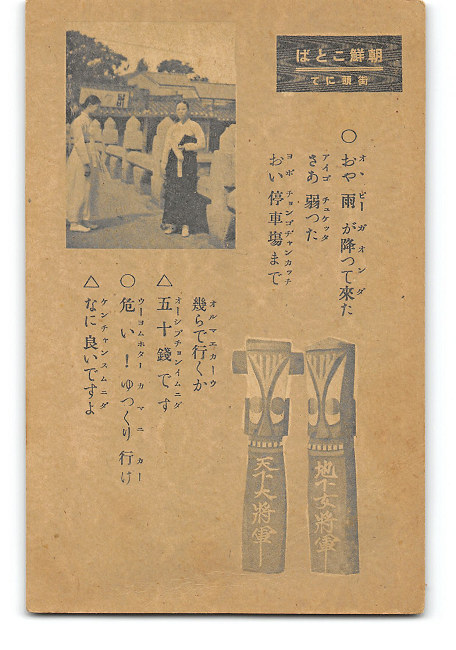 朝鮮ことば
街頭にて
オ、ビーガオンダ
○ おや 雨 が降つて來た
アイゴ チュケッタ
さあ 弱つた
ヨボ チョンゴヂャンカッチ
おい 停車塲まで
オルマエカーウ
幾らで行くか
オーシプチョンイムニダ
△ 五十錢です
ウーヨムホター カマニカー
○ 危い!ゆつくり行け
ケンチャンスムニダ
△ なに良いですよ
地下女將軍
天下大將軍